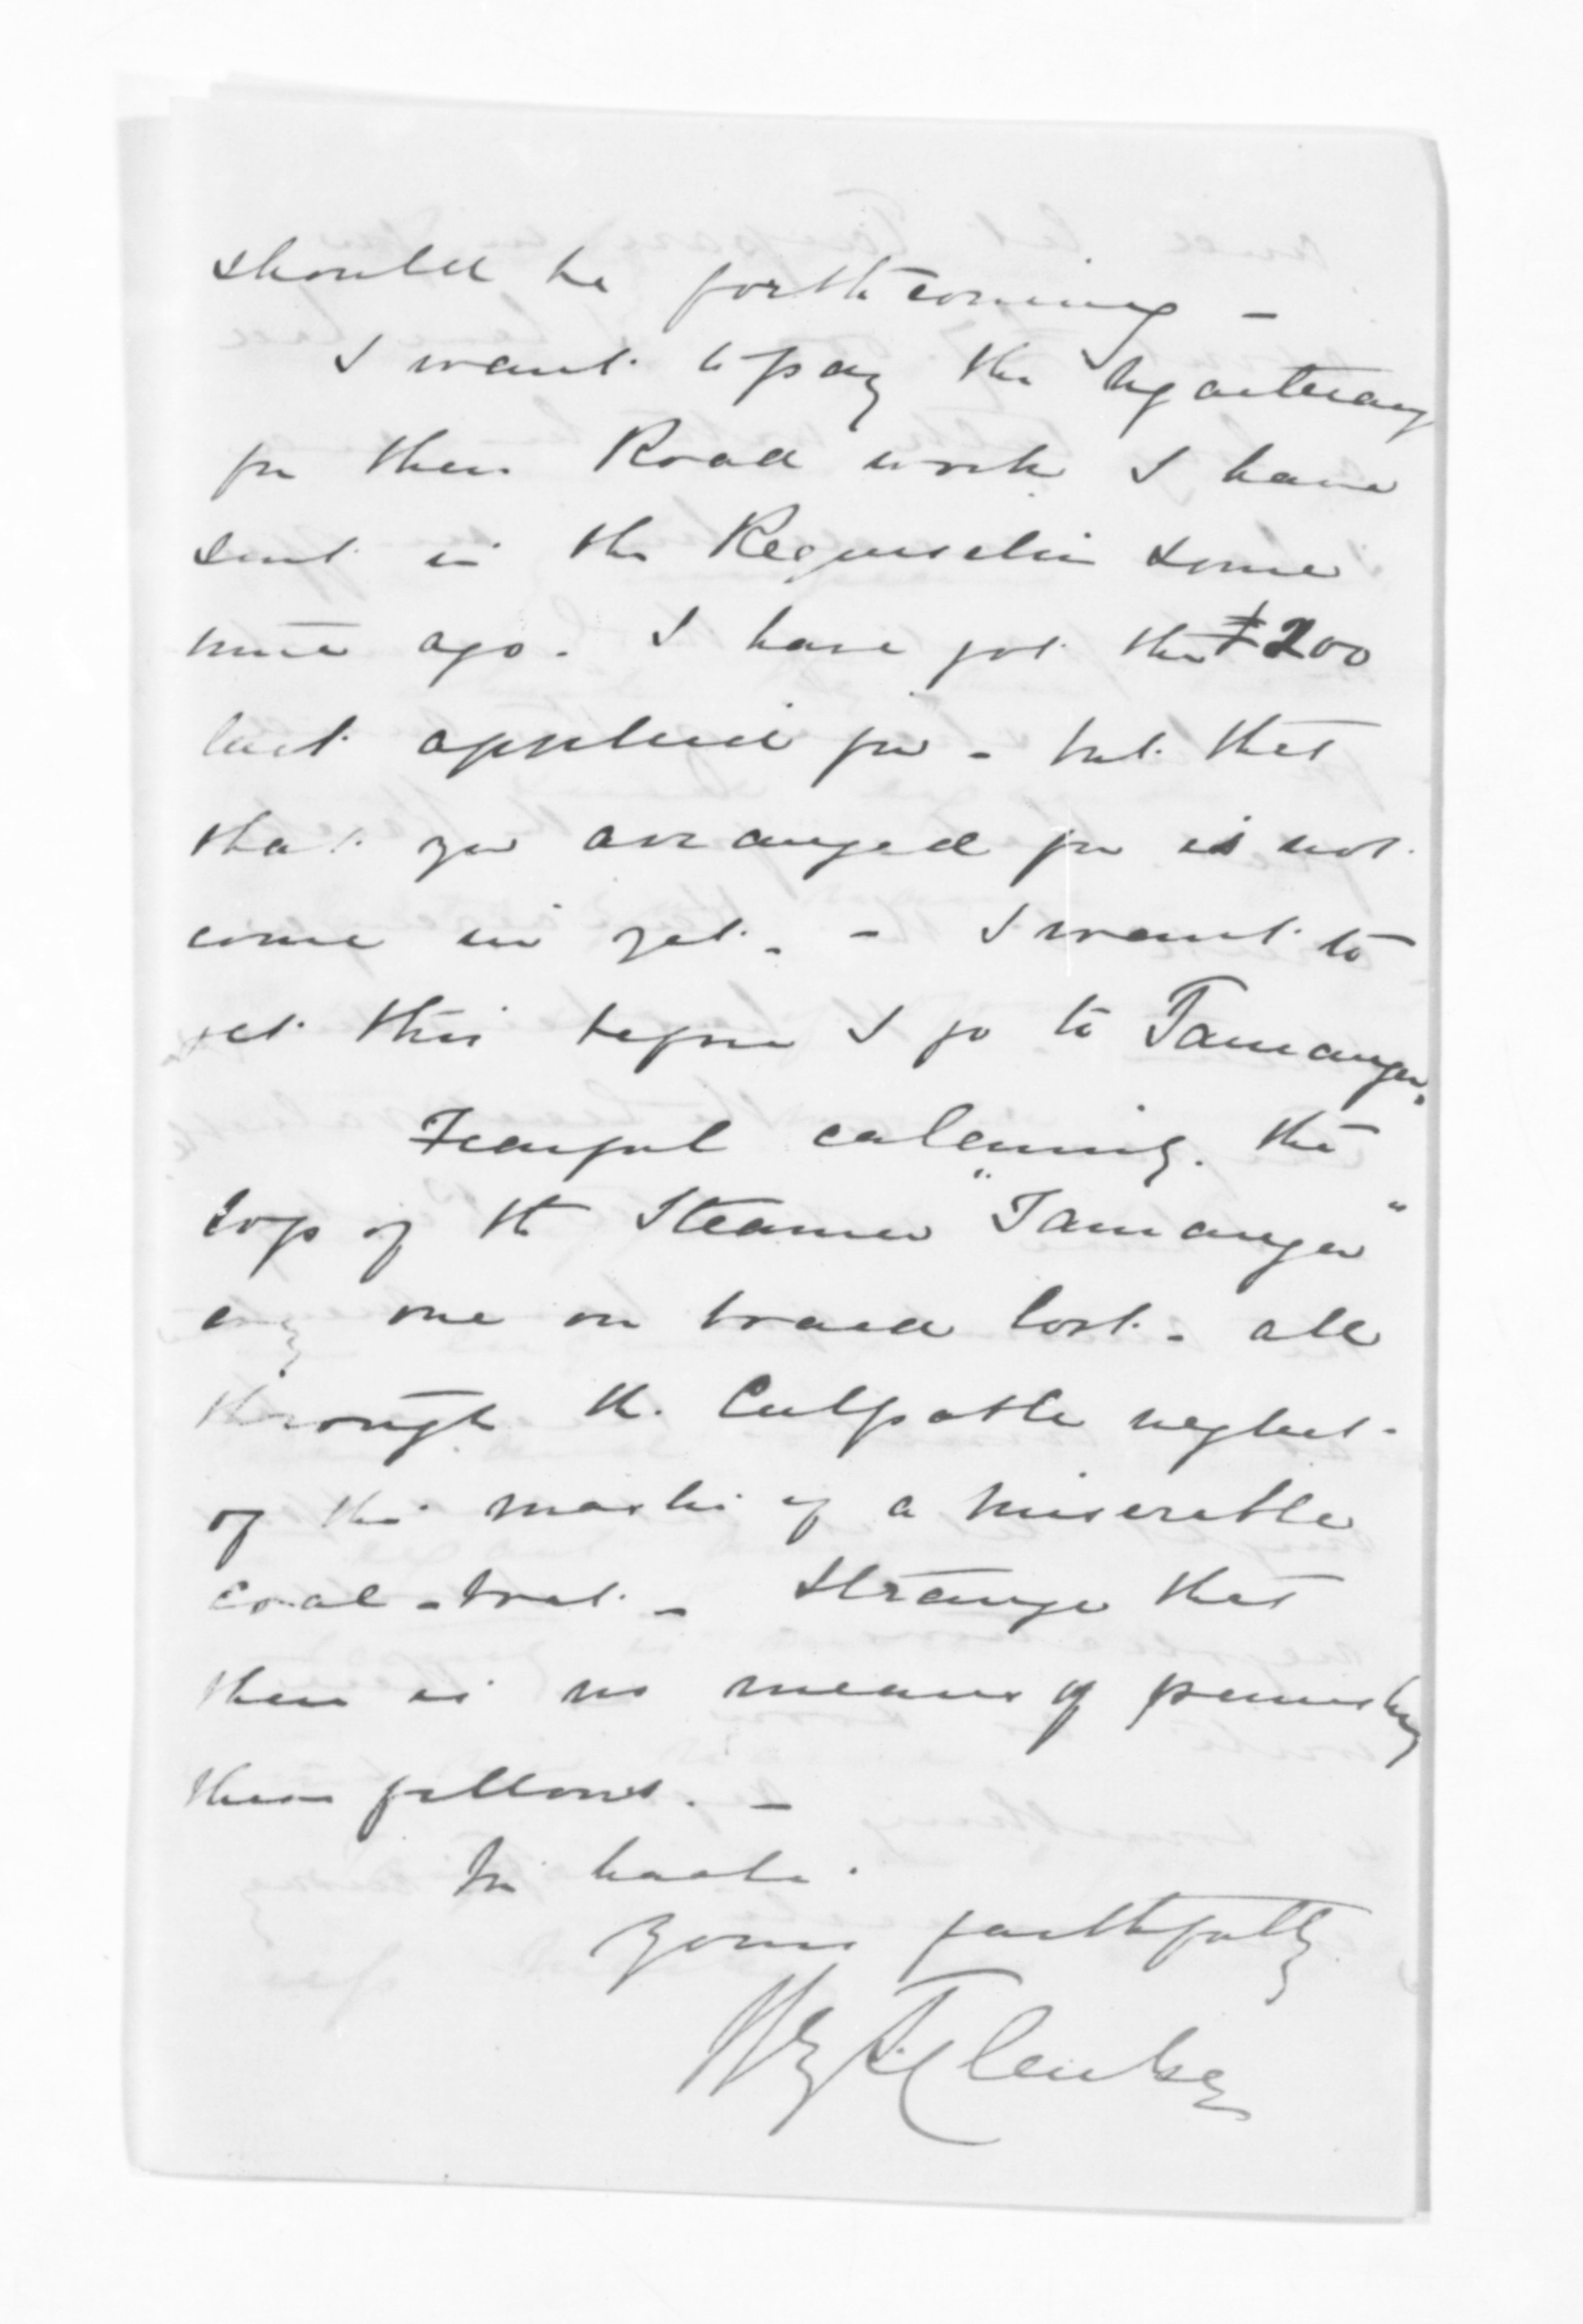 should be forthcoming –
I want to pay the Ngaiterangi
for their Road work I have
sent in the Requisition some
time ago. I have got the £200
last applied for – but that
that you arranged for is not
come in yet. – I want to
get this before I go to Tauranga.
Fearful calamity. the
loss of the Steamer "Tauranga"
every one on board lost – all
through the Culpable neglect
of the master of a miserable
coal-boat – Strange that
there is no means of punishing
these fellows. –
In haste
Yours faithfully
H. T. Clarke